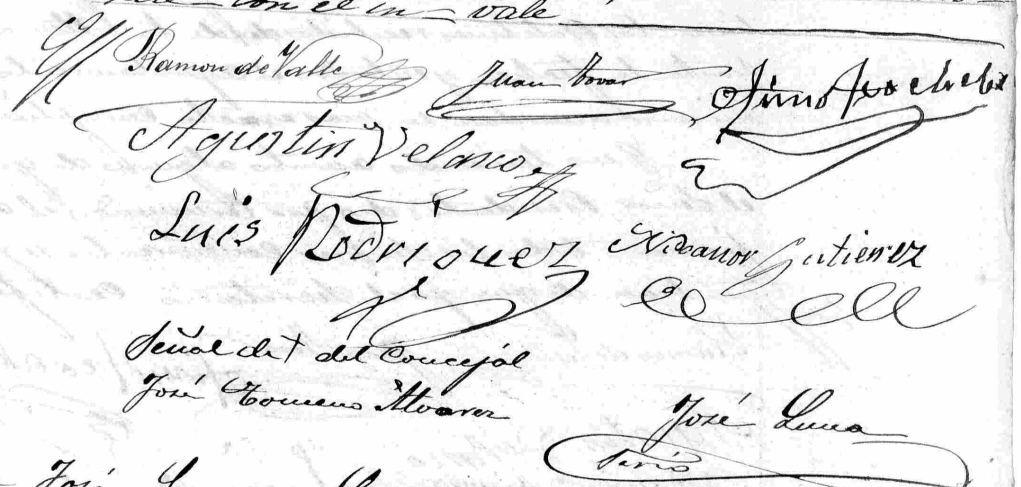 con el in vale
Ramon de Valle
Juan Tovar
Agustin Velasco
Luis Rodriguez
Nicanor Gutierrez
Señal de † del Concejal
José Alvarez
José Luna
Srio
José